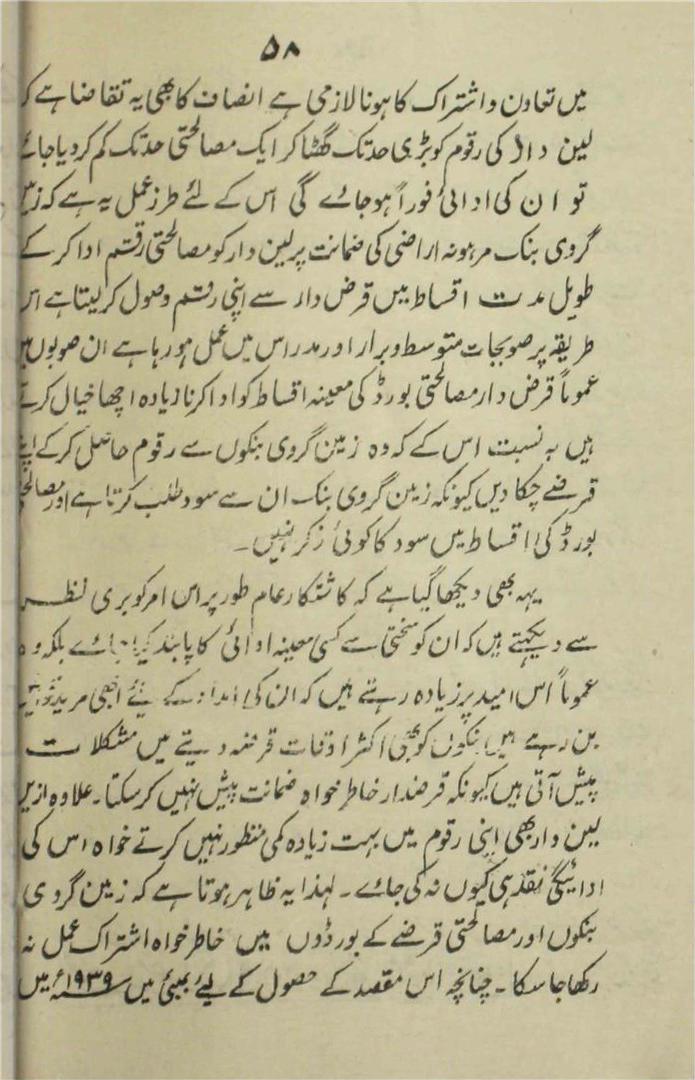 ۵۸
میں تعاون و اشتراک کا ہونا لازمی ہے انصاف کا بھی یہ تقاضا ہے کہ
لین دار کی رقوم کو بڑی حد تک گھٹا کر ایک مصالحتی حد تک کم کر دیا جائے
تو ان کی ادائی فوراً ہو جائے گی اس کے لئے طرز عمل یہ ہے کہ زمین
گروی بنک مرہونہ اراضی کی ضمانت پر لین دار کو مصالحتی رقم ادا کر کے
طویل مدت اقساط میں قرض دار سے اپنی رقم وصول کر لیتا ہے اس
طریقہ پر صوبجات متوسط و برار اور مدراس میں عمل ہو رہا ہے ان صوبوں میں
عموماً قرض دار مصالحتی بورڈ کی معینہ اقساط کو ادا کرنا زیادہ اچھا خیال کرتے
ہیں بہ نسبت اس کے کہ وہ زمین گروی بنکوں سے رقوم حاصل کر کے اپنے
قرضے چکا دیں کیونکہ زمین گروی بنک ان سے سود طلب کرتا ہے اور مصالحتی
بورڈ کی اقساط میں سود کا کوئی ذکر نہیں۔
یہہ بھی دیکھا گیا ہے کہ کاشتکار عام طور پر اس امر کو بری نظر
سے دیکھتے ہیں کہ ان کو سختی سے کسی معینہ ادائی کا پابند کیا جائے بلکہ وہ
عموماً اس امید پر زیادہ رہتے ہیں کہ ان کی امداد کے لئے ابھی مرید قوانین
بن رہے ہیں بنکوں کو بھی اکثر اوقات قرضہ دیتے میں مشکلات
پیش آتی ہیں کیونکہ قرضدار خاطر خواہ ضمانت پیش نہیں کر سکتا۔ علاوہ ازیں
لین دار بھی اپنی رقوم میں بہت زیادہ کمی منظور نہیں کرتے خواہ اس کی
ادائیگی نقد ہی کیوں نہ کی جائے۔ لہذا یہ ظاہر ہوتا ہے کہ زمین گروی
بنکوں اور مصالحتی قرضے کے بورڈوں میں خاطر خواہ اشتراک عمل نہ
رکھا جا سکا۔ چنانچہ اس مقصد کے حصول کے لیئے بمبئی میں ۱۹۳۹ء میں